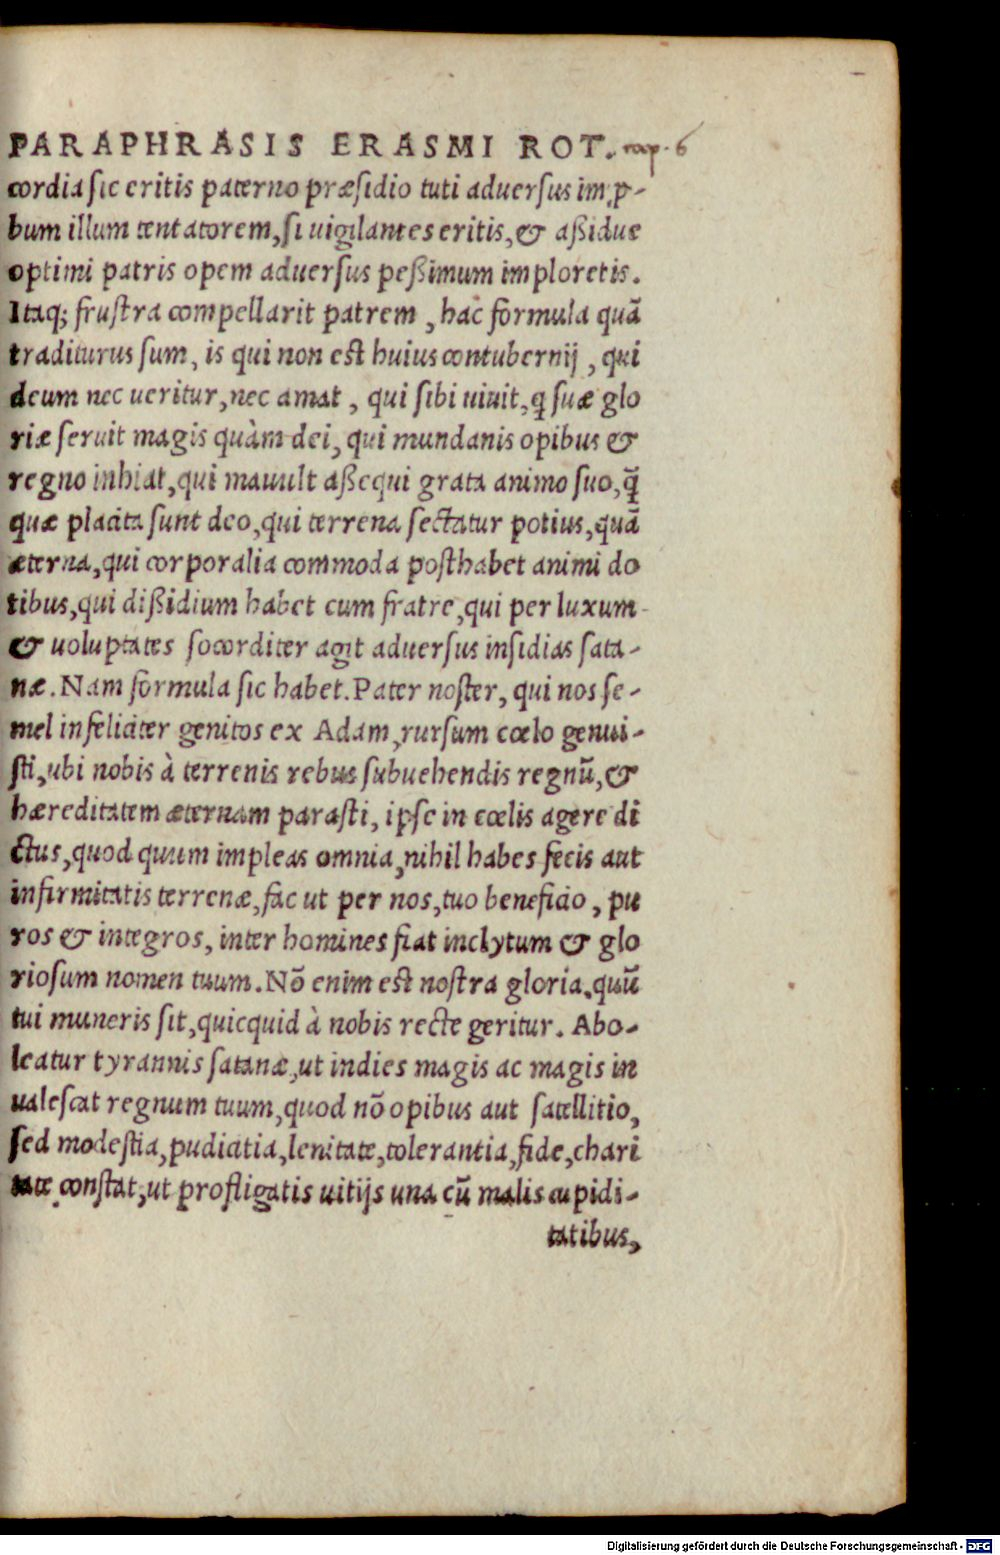 PARAPHRASIS ERASMI ROT. cap. 6
cordia sic eritis paterno præsidio tuti aduersus imꝓ-
bum illum tentatorem, si uigilantes eritis, & aßidue
optimi patris opem aduersus peßimum imploretis.
Itaq; frustra compellarit patrem, hac formula quã
traditurus sum, is qui non est huius contubernij, qui
deum nec ueritur, nec amat, qui sibi uiuit, q̃ suæ glo
riæ seruit magis quàm dei, qui mundanis opibus &
regno inhiat, qui mauult aßequi grata animo suo, q̃
quæ placita sunt deo, qui terrena sectatur potius, quã
æterna, qui corporalia commoda posthabet animi do
tibus, qui dißidium habet cum fratre, qui per luxum
& uoluptates socorditer agit aduersus insidias sata-
næ. Nam formula sic habet. Pater noster, qui nos se-
mel infeliciter genitos ex Adam, rursum cœlo genui-
sti, ubi nobis à terrenis rebus subuehendis regnũ, &
hæreditatem æternam parasti, ipse in cœlis agere di
ctus, quod quum impleas omnia, nihil habes fecis aut
infirmitatis terrenæ, fac ut per nos, tuo beneficio, pu
ros & integros, inter homines fiat inclytum & glo
riosum nomen tuum. Nõ enim est nostra gloria, quũ
tui muneris sit, quicquid à nobis recte geritur. Abo-
leatur tyrannis satanæ, ut indies magis ac magis in
ualescat regnum tuum, quod nõ opibus aut satellitio,
sed modestia, pudicitia, lenitate, tolerantia, fide, chari
tate constat, ut profligatis uitijs una cũ malis cupidi-
tatibus,
Digitalisierung gefördert durch die Deutsche Forschungsgemeinschaft - DFG